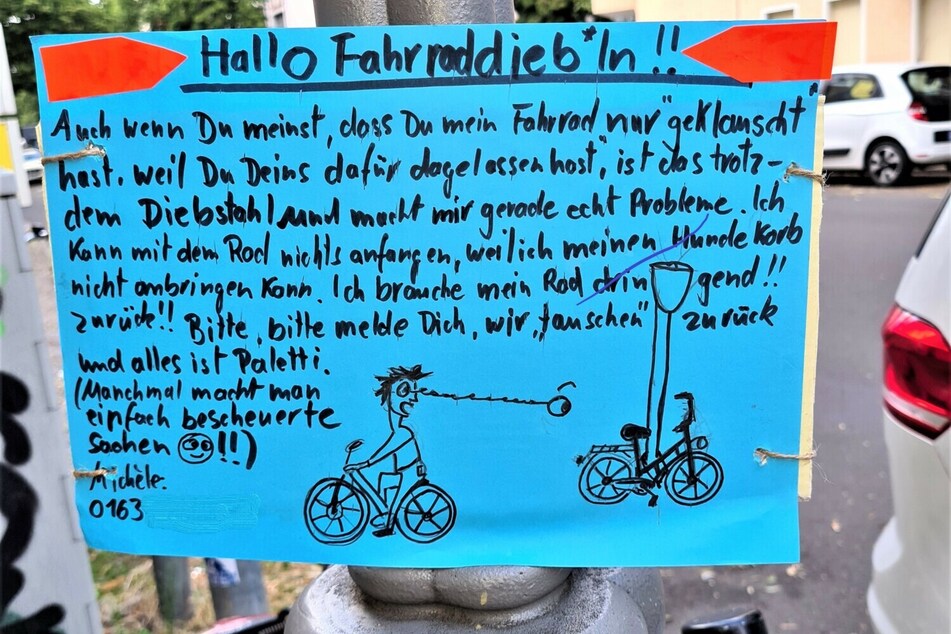 Hallo Fahrraddieb*In!!
Auch wenn Du meinst, dass Du mein Fahrrad "nur" geklauscht
hast, weil Du Deins dafür dagelassen hast, ist das trotz-
dem Diebstahl und macht mir gerade echt Probleme. Ich
kann mit dem Rad nichts anfangen, weil ich meinen Hundekorb
nicht anbringen kann. Ich brauche mein Rad drin gend!!
zurück!! Bitte, bitte melde Dich, wir „tauschen" zurück
und alles ist Paletti.
(Manchmal macht man
einfach bescheuerte
Sachen !!)
Michèle.
0163